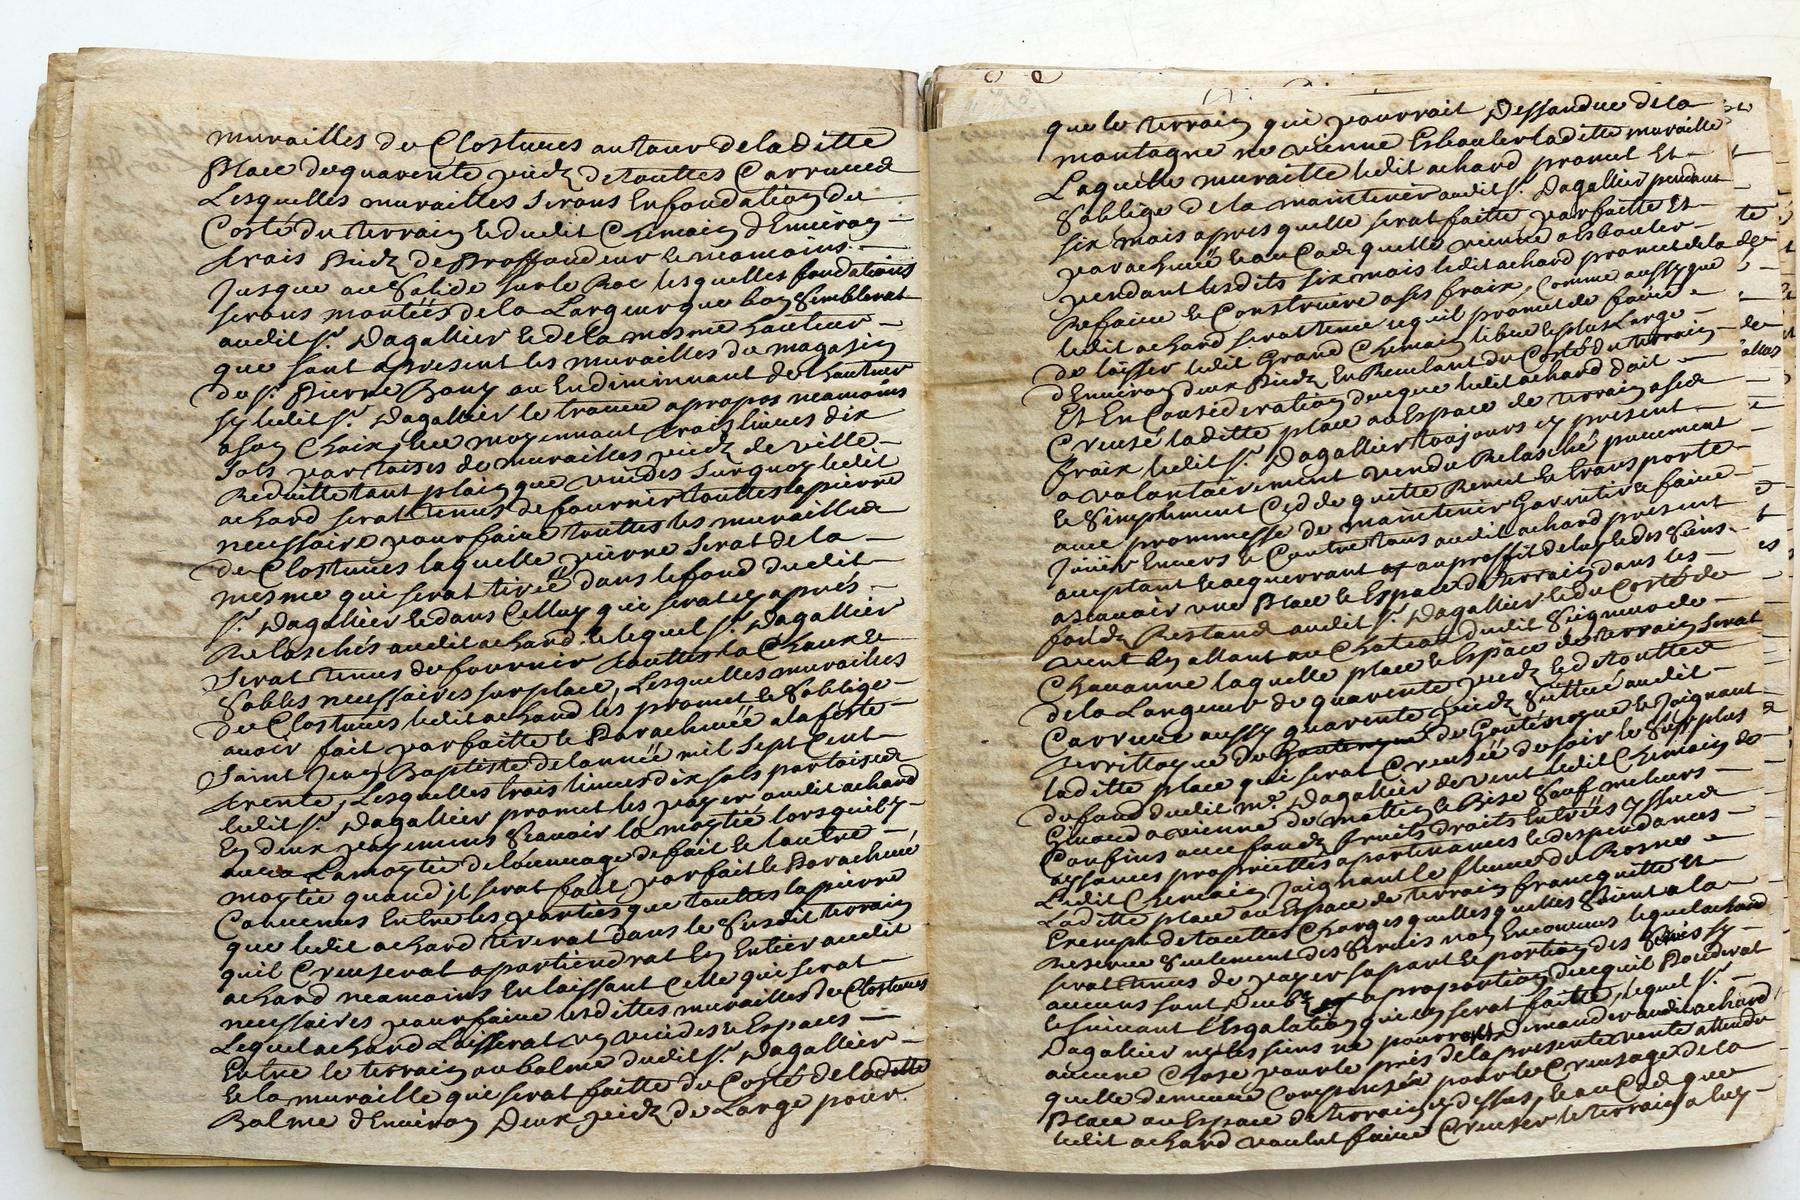 murailles de Clostures au tour de laditte
Place de quarente piedz de touttes Carrures
Lesquelles murailles serons En fondation du
Costé du terrain & dudit Chemain d'Enuiron
trais piedz de Proffondeur & neamoins
Jusque au Solide sur le Roc lesquelles fondations
serons montées de la Largeur que bon Semblerat
audit Sr. Dagallier & de la mesme hauteur
que sont apresent les murailles du magasin
du Sr. Pierre Bony ou En diminuant de hauteur
sy ledit Sr. Dagallier le trouue apropos neamoins
a son Choix, & ce moyennant trois liures dix
Sols par toises de murailles piedz de ville
Reduitte tant plain que vuides Surquoy ledit
achard serat tenus de fournir touttes la pierre
necessaire pour faire touttes les murailles
de Clostures laquelle pierre serat de la
mesme qui serat tirée dans le fond dudit
Sr. Dagallier & dans Celluy qui serat cy apres
Relaschés audit achard & lequel Sr. Dagallier
Serat tenus de fournir touttes la Chaux &
Sables necessaires sur place, Lesquelles murailles
de Clostures ledit achard les promet & Soblige
auoir fait parfaitte & Parachuée a la feste
Saint Jean Baptiste de lannée mil Sept Cent
trente, Lesquelles trois liures dix sols par toises
ledit Sr. Dagallier promet les payer audit achard
En deux payemens Scauoir la moytié lorsquil y
aura La moytié de louurage de fait & lautre
moytie quand jl serat fait parfait & Parachué
Conuenus Entre les parties que touttes la pierre
que ledit achard tirerat dans le Susdit terrain
quil Creuserat apartiendrat En Entier audit
achard neamoins En laissant Celle qui serat
necessaires pour faire lesdittes murailles de Clostures
Lequel achard Laisserat un vuides & Espaces
Entre le terrain ou balme dudit Sr. Dagallier
& la muraille qui serat faitte du Costé de laditte
Balme d'Enuiron Deux piedz de Large pour
que le terrain qui pourrait Dessandre de la
montagne ne vienne Esbouler laditte muraille
Laquelle muraille ledit achard promet Et
Soblige de la maintenir audit Sr. Dagallier pendant
six mois apres quelle serat faitte parfaitte Et
parachuée & au Cas quelle vienne a Esbouler
pendant lesdits six mois ledit achard promet de la
Refaire & Construire a ses fraix, Comme aussy que
ledit achard serat tenu & quil promet de faire
de laisser ledit Grand Chemain libre & plus Large
d'Enuiron deux Piedz En Reculant du Costé du terrain
Et En Consideration de que ledit achard doit
Creusé laditte place ou Espace de terrain a ses
fraix ledit Sr. Dagallier toujours cy present
a volontairement vendu Relasché purement
& Simplement Ced de quitte Remet & transporte
auec prommesse de maintenir Garentir & faire
Jouir Enuers & Contre tous audit achard present
acceptant & acquerrant au proffit de luy & des Siens
ascauoir une Place & Espace de terrain dans les
fondz Restand audit Sr. Dagallier & du Costé de
vent En allant au Chateau dudit Seigneur de
Chauanne laquelle place & Espace de terrain serat
de la Largeur de quarente piedz & de touttes
Carrure aussy quarente piedz Sittué audit
territtoyre de Gontenogue & Joignant
laditte place qui serat Creusée de soir le Surplus
du fond dudit mr. Dagallier de vent ledit Chemain de
Grand a vienne de mattin & Bise Sauf meliurs
Confins auec fondz fruits droits Entrées yssues
aysances proprietes apartenances & despendances
Ledit Chemain Joignant le fleuue du Rosne
Laditte place ou Espace de terrain franc quitte Et
Exempt de touttes Charges quelles quelles Soient a la
Reserue Seulement des Seruis non Enconnus lequel achard
serat tenus de payer sa part & portion des Seruis sy
aucuns sont Deubz a proportion de ce quil Poscederat
& suiuant l'Esgalation qui en serat faitte, lequel Sr.
Dagallier ny les siens ne pourront Demander audit achard
aucune Chose pour le prix de la presente vente attendu
quelle demeure Compensée pour le Creusage de la
Place ou Espace de terrain cy dessus, & au Cas que
ledit achard voulut faire Creuser le terrain a luy